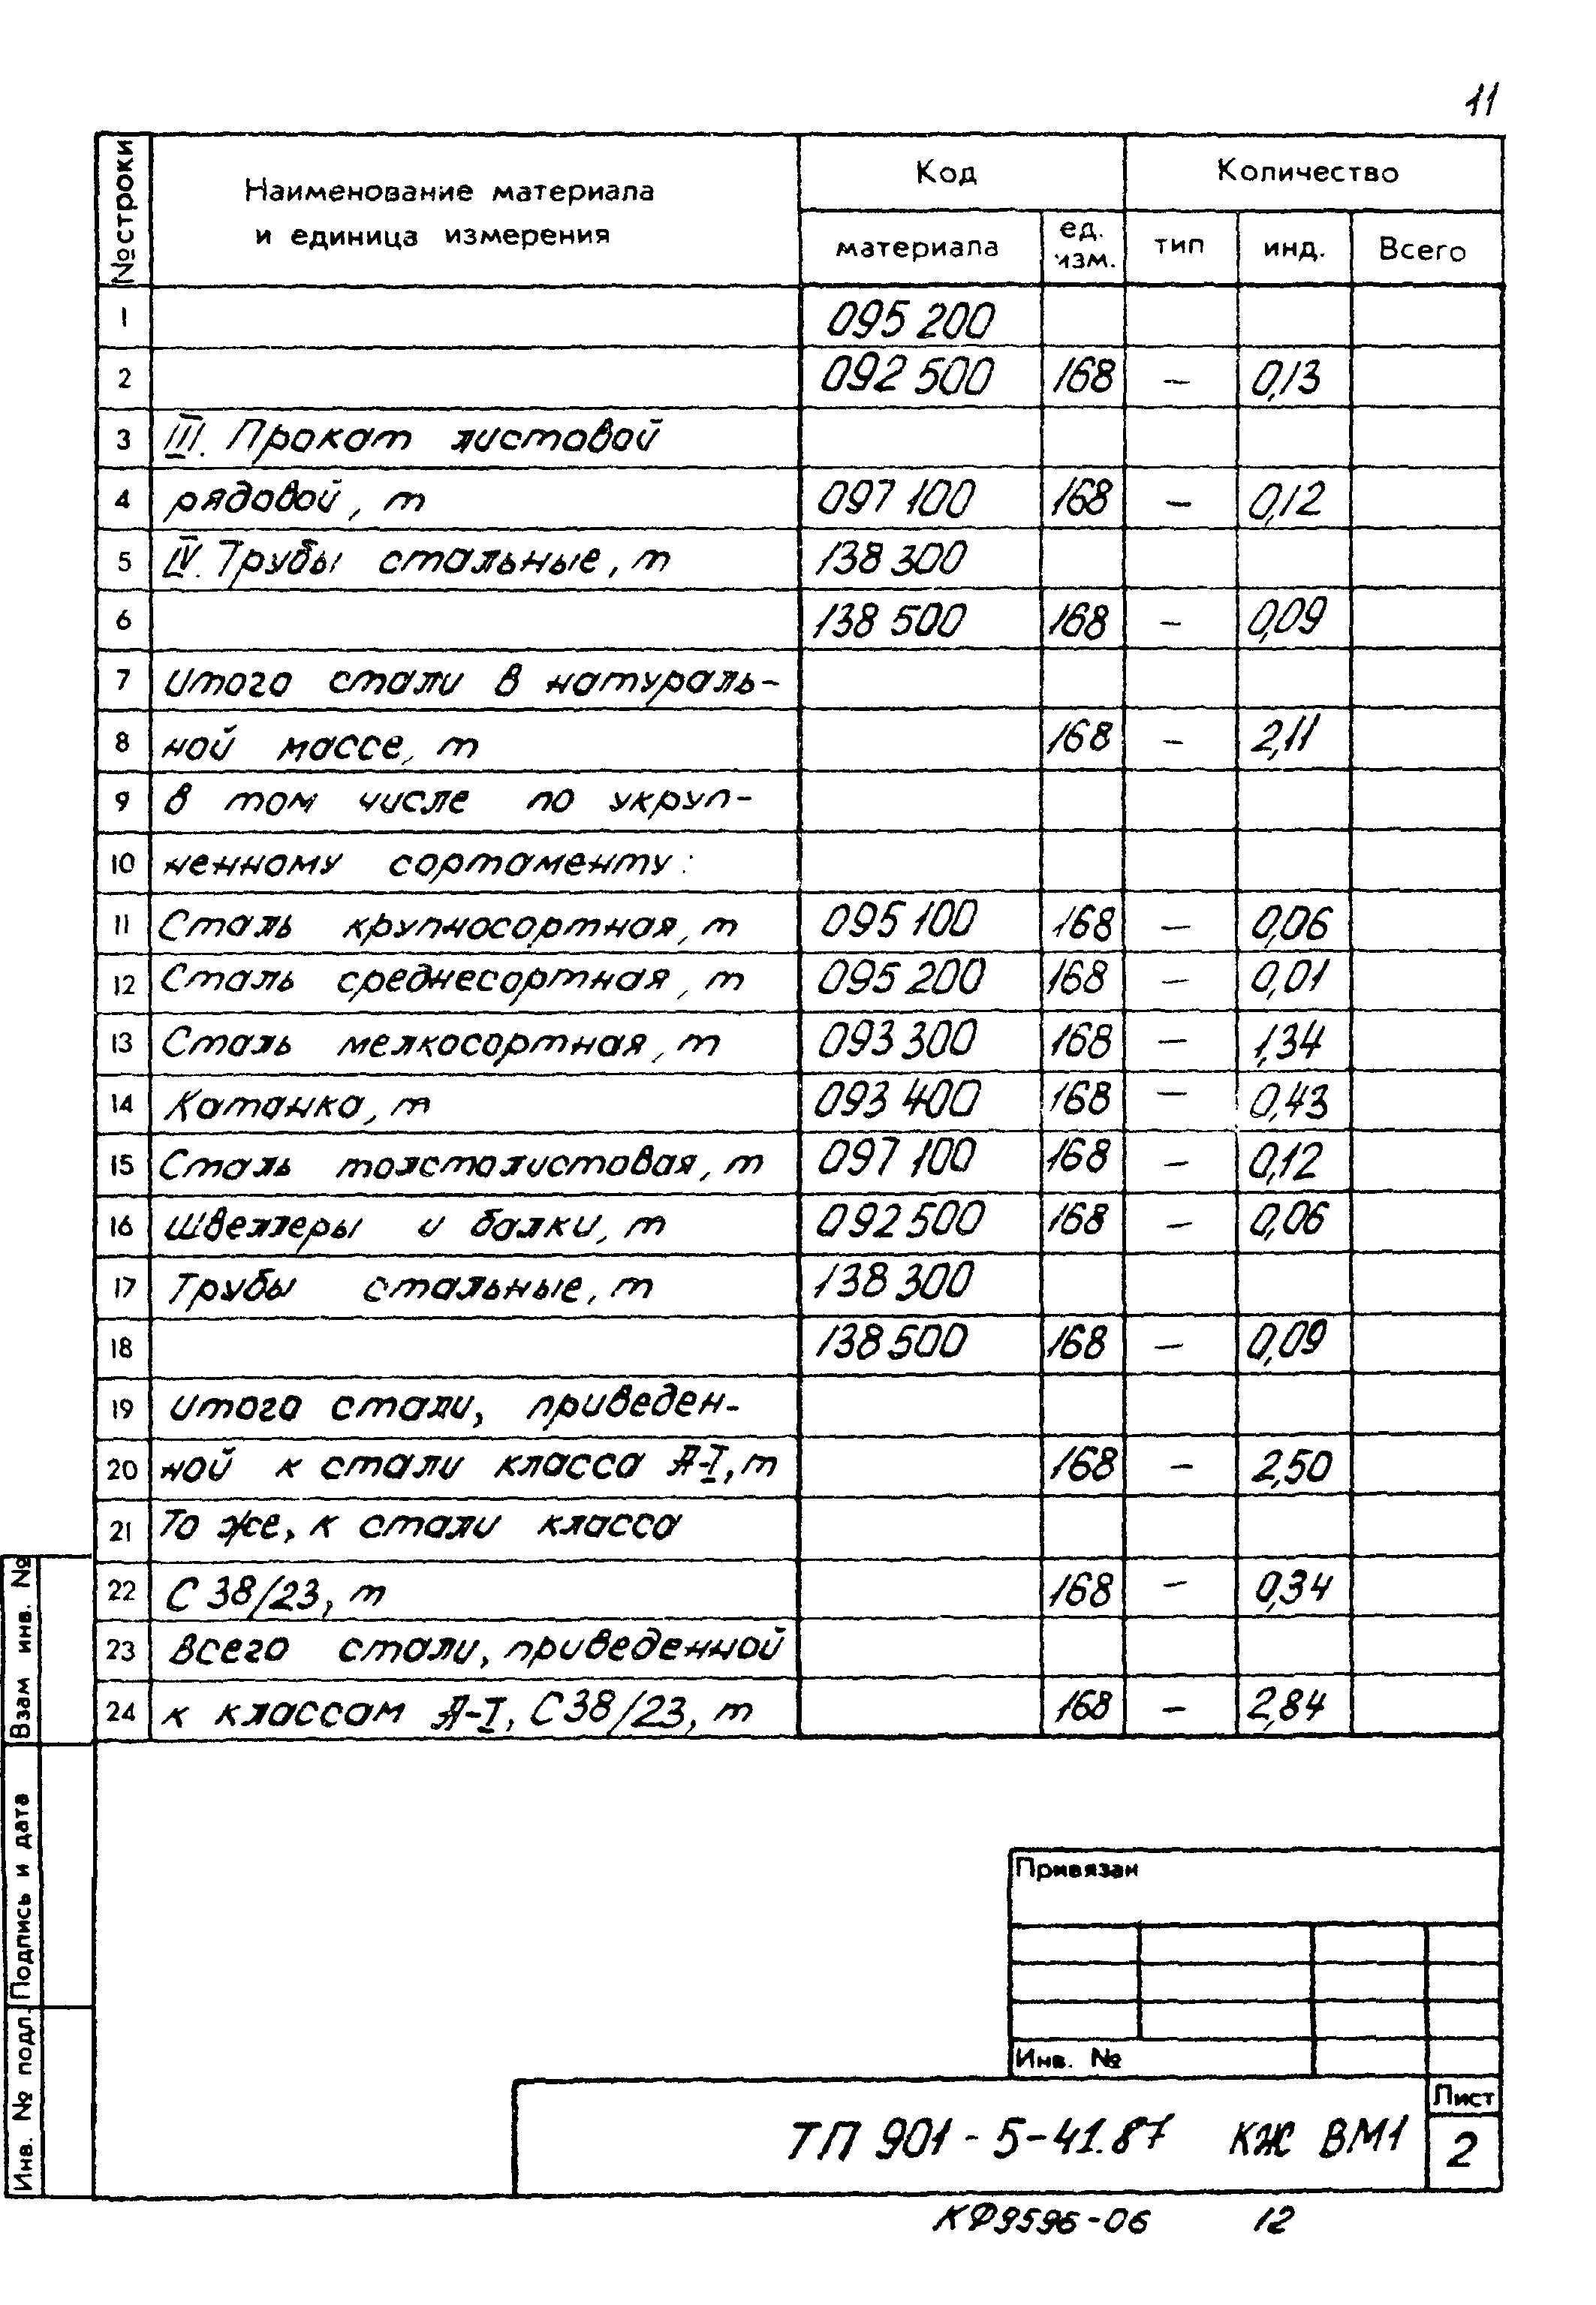 11
№ строки
Наименование материала и единица измерения
Код
Количество
материала
ед. изм.
тип
инд.
Всего
1 095 200
2 092 500 168 – 0,13
3 III. Прокат листовой
4 рядовой, т 097 100 168 – 0,12
5 IV. Трубы стальные, т 138 300
6 138 500 168 – 0,09
7 итого стали в натураль-
8 ной массе, т 168 – 2,11
9 в том числе по укруп-
10 ненному сортаменту:
11 Сталь крупносортная, т 095 100 168 – 0,06
12 Сталь среднесортная, т 095 200 168 – 0,01
13 Сталь мелкосортная, т 093 300 168 – 1,34
14 Катанка, т 093 400 168 – 0,43
15 Сталь толстолистовая, т 097 100 168 – 0,12
16 Швеллеры и балки, т 092 500 168 – 0,06
17 Трубы стальные, т 138 300
18 138 500 168 – 0,09
19 итого стали, приведен-
20 ной к стали класса А-I, т 168 – 2,50
21 То же, к стали класса
22 С 38/23, т 168 – 0,34
23 всего стали, приведенной
24 к классам А-I, С 38/23, т 168 – 2,84
Взам инв. №
Подпись и дата
Инв. № подл.
Привязан
Инв. №
ТП 901-5-41.87 КЖ ВМ1
Лист
2
КФ9596-06 12